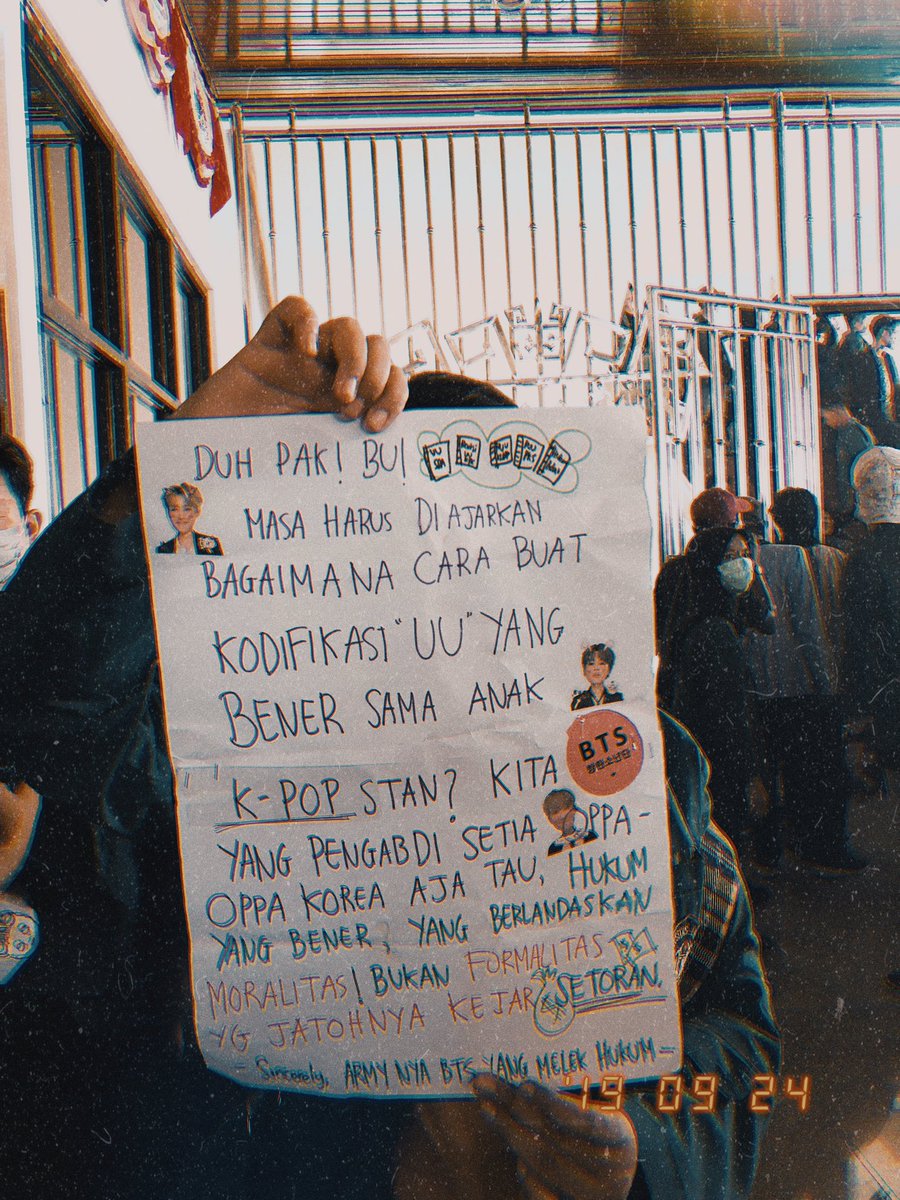 DUH PAK! BU!
MASA HARUS DIAJARKAN
BAGAIMANA CARA BUAT
KODIFIKASI "UU" YANG
BENER SAMA ANAK
"K-POP STAN"? KITA
BTS
방탄소년단
YANG PENGABDI SETIA OPPA-
OPPA KOREA AJA TAU, HUKUM
YANG BENER, YANG BERLANDASKAN
MORALITAS! BUKAN FORMALITAS
YG JATOHNYA KEJAR SETORAN.
- Sincerely, ARMY NYA BTS YANG MELEK HUKUM -
'19 09 24